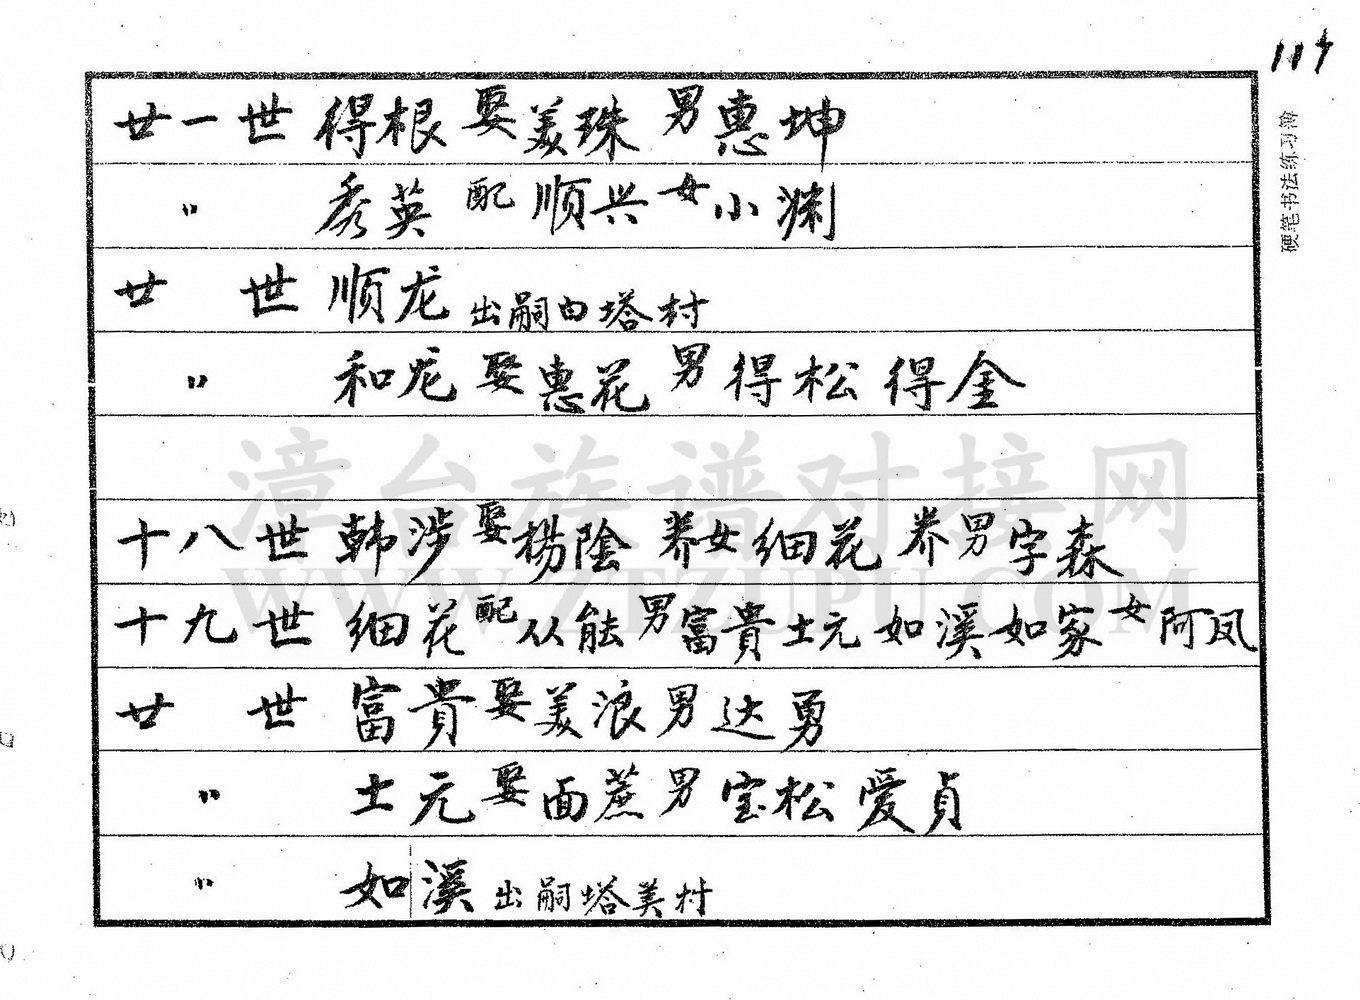 114
硬笔书法练习簿
廿一世 得根 娶美珠 男惠坤
〃 秀英 配 顺兴 女小渊
廿 世 顺龙 出嗣白塔村
〃 和龙 娶惠花 男得松 得金
十八世 韩涉 娶杨险 养女细花 养男字森
十九世 细花 配从能 男富貴 士元 如溪 如家 女阿凤
廿 世 富貴 娶美浪 男达勇
〃 士元 娶面蔗 男宝松 爱貞
〃 如溪 出嗣塔美村
漳台族谱对接网
WWW.ZTZUPU.COM